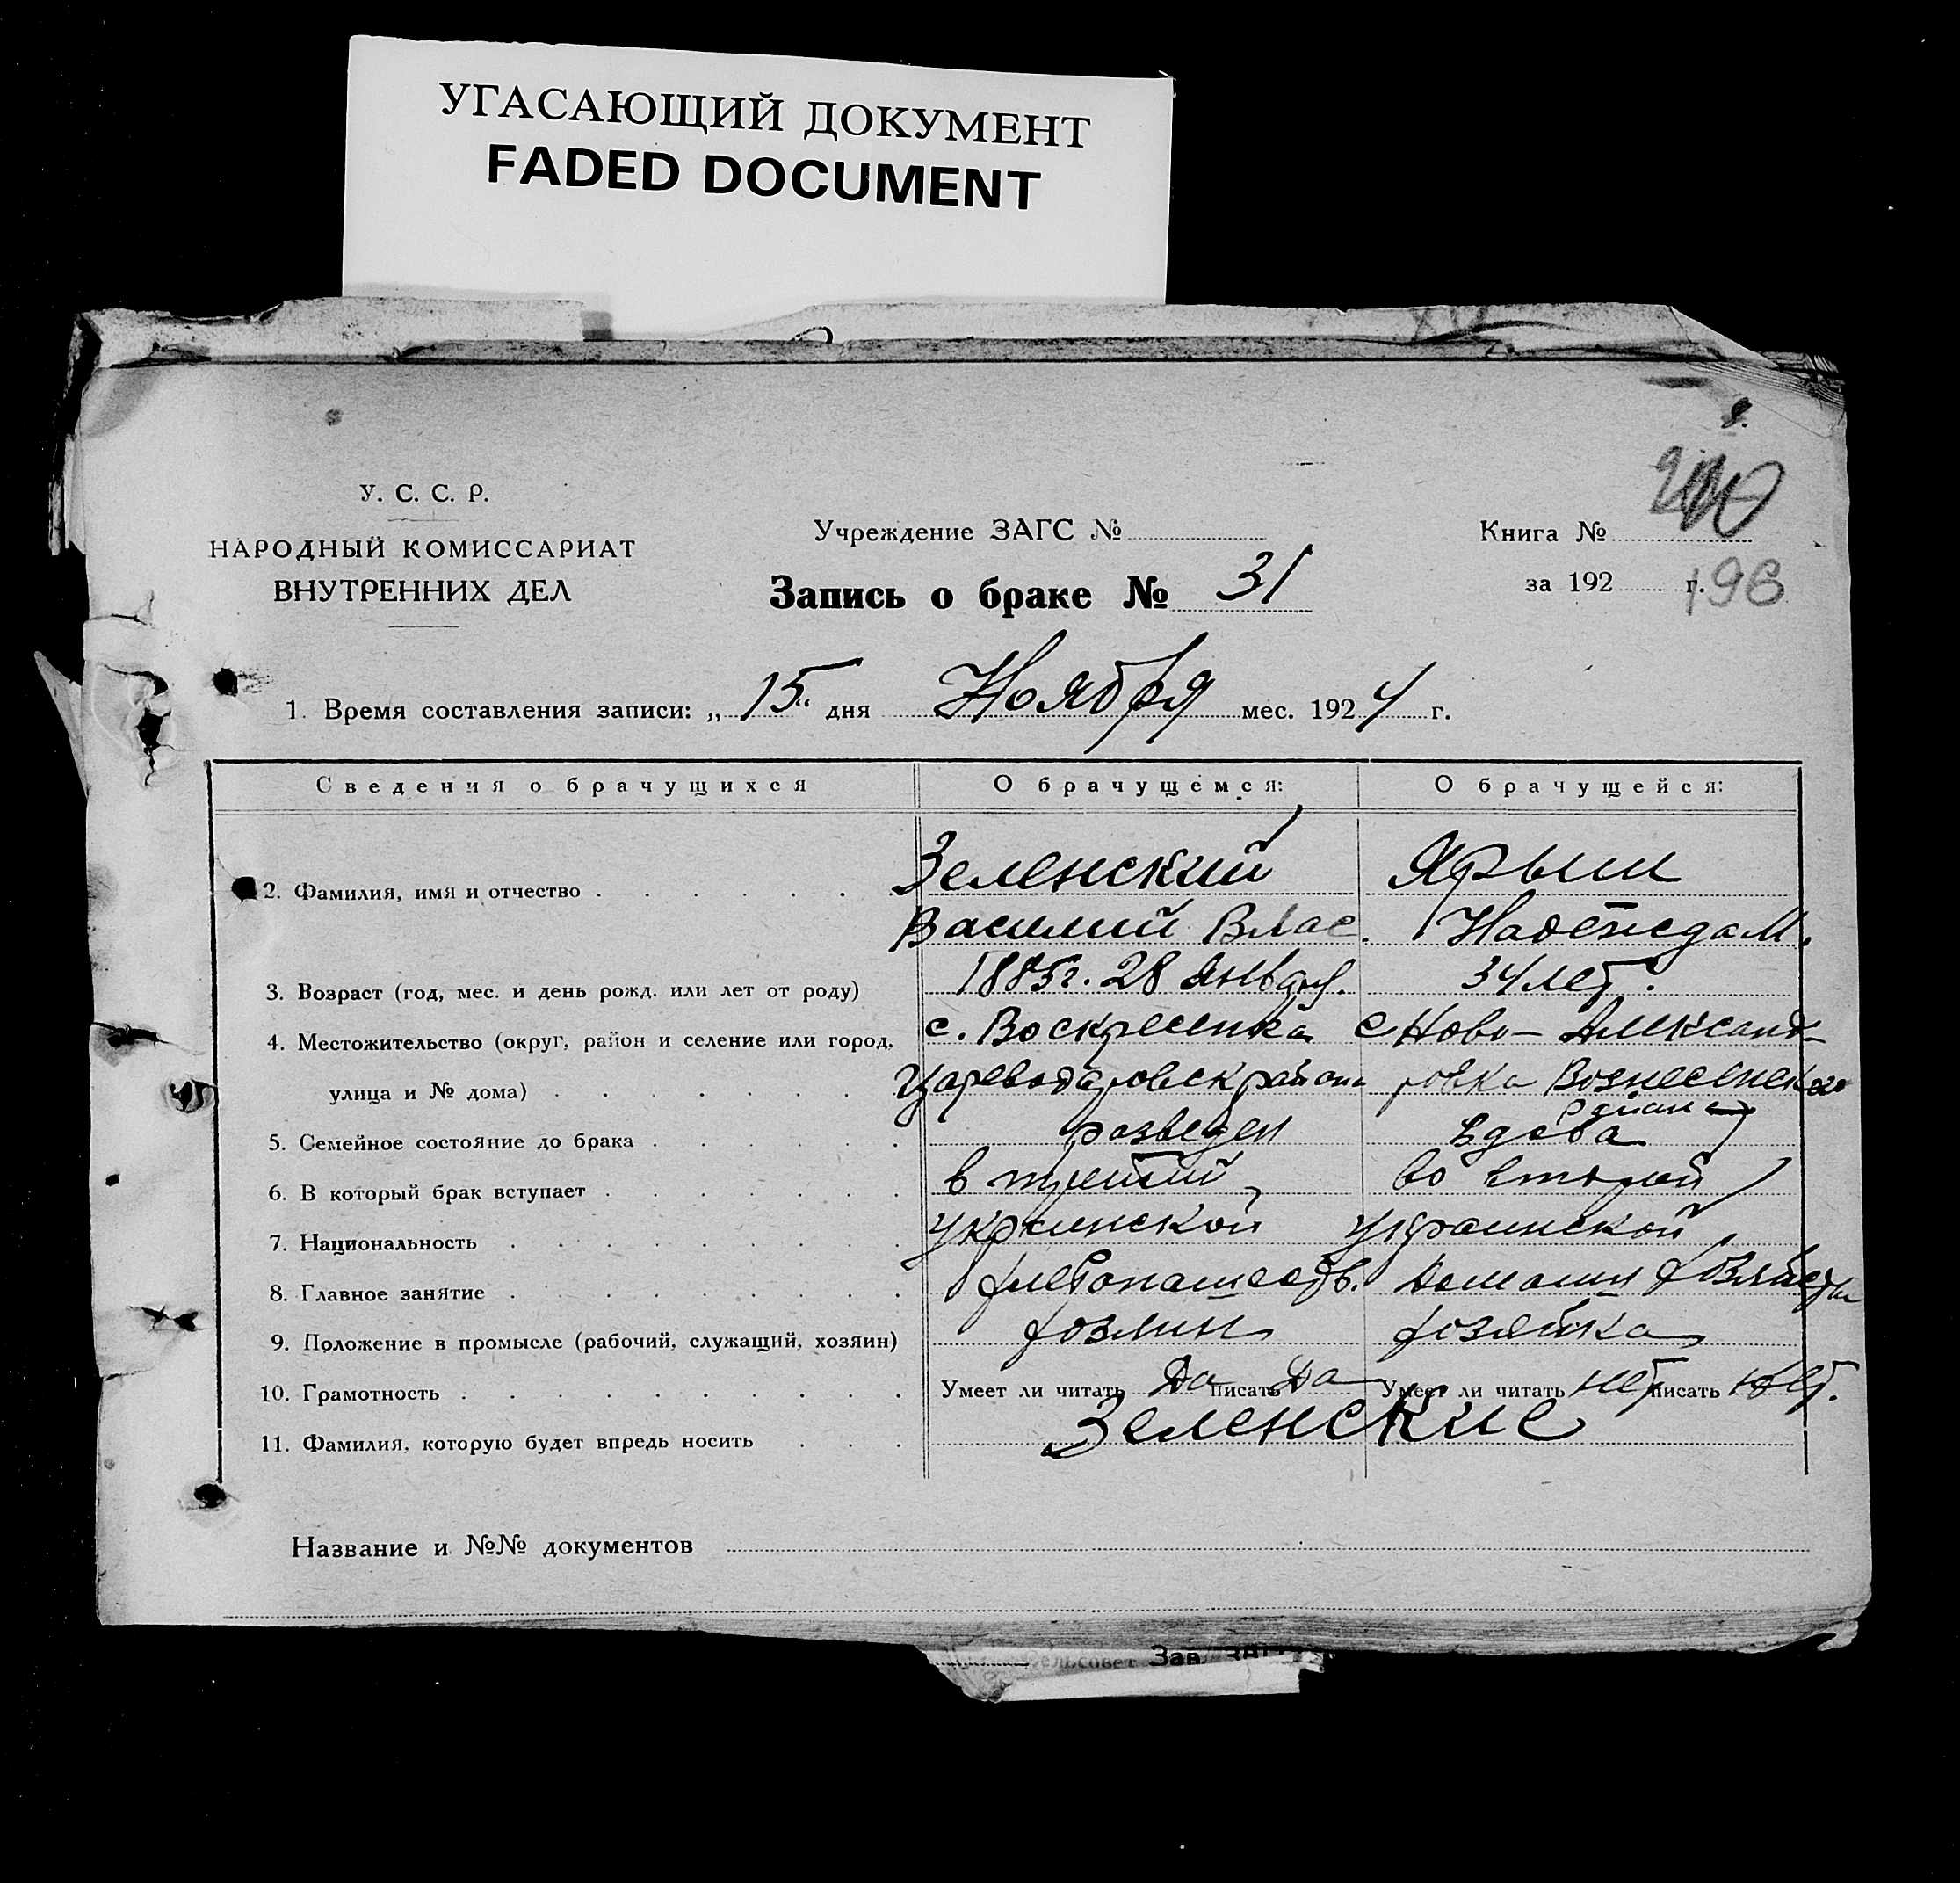 УГАСАЮЩИЙ ДОКУМЕНТ
FADED DOCUMENT
У. С. С. Р.
НАРОДНЫЙ КОМИССАРИАТ
ВНУТРЕННИХ ДЕЛ
Учреждение ЗАГС №
Запись о браке № 31
Книга №
за 192 г.
196
1. Время составления записи: „ 15 “ дня Ноября мес. 1924 г.
Сведения о брачущихся О брачущемся: О брачущейся:
2. Фамилия, имя и отчество Зеленский Ярыш
Василий Влас. Надежда М.
3. Возраст (год, мес. и день рожд. или лет от роду) 1885г. 28 Январ. 34 лет.
4. Местожительство (округ, район и селение или город, с. Воскресенка с Ново-Александ-
улица и № дома) района ровка Вознесенского
района
5. Семейное состояние до брака разведен вдова
6. В который брак вступает в третий во второй
7. Национальность украинской украинской
8. Главное занятие хлебопашеств. Домашн хозяйства
9. Положение в промысле (рабочий, служащий, хозяин) хозяин хозяйка
10. Грамотность Умеет ли читать Да писать Да Умеет ли читать нет писать нет.
11. Фамилия, которую будет впредь носить Зеленские
Название и №№ документов
сельсовет Зав.